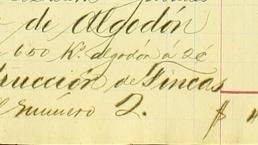 de Algodón
650 K. algodón á 2¢
trucción de Fincas
l numero 2. $